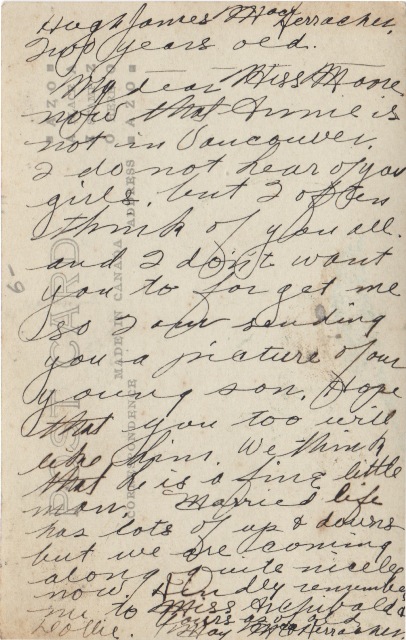 Hugh James Mac Kerracher,
Two years old.
My dear Miss Mone
now that Annie is
not in Vancouver.
I do not hear of you
girls, but I often
think of you all.
and I don't want
you to forget me
so I am sending
you a picture of our
young son. Hope
that you too will
like him. We think
that he is a fine little
man. Married life
has lots of up & downs
but we are coming
along quite nicely
now. Kindly remember
me to Miss Archibald &
Dollie. Yours as ever
May MacKerracher
POST CARD
CORRESPONDENCE
MADE IN CANADA
ADDRESS
AZO
AZO